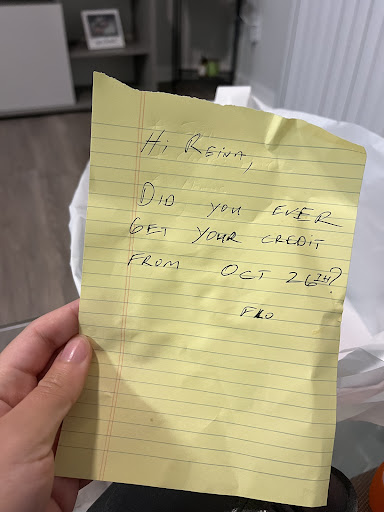 Hi REINA,
DID YOU EVER
GET YOUR CREDIT
FROM OCT 26TH?
FLO